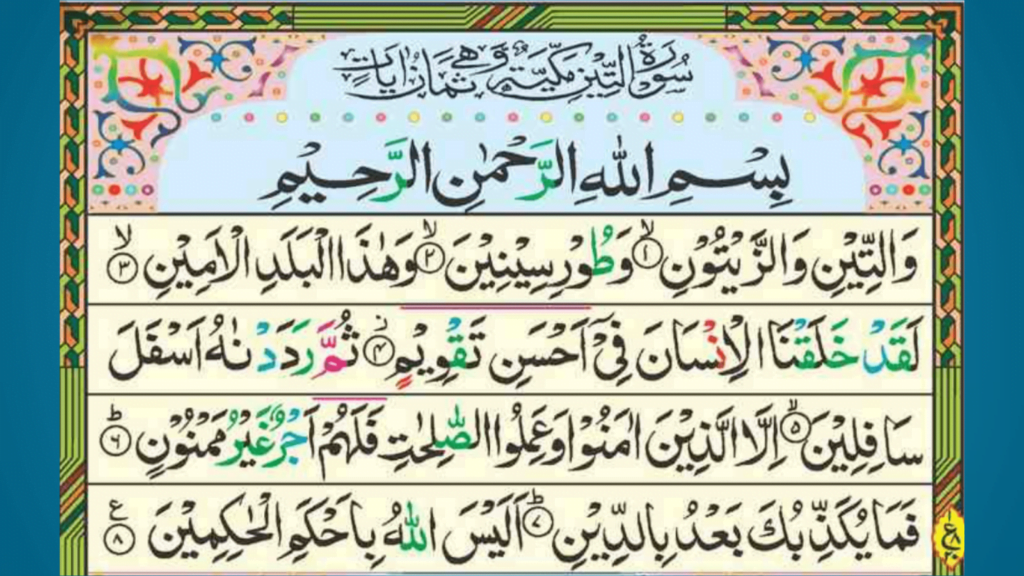 سُوْرَةُ التِّيْنِ مَكِّيَّةٌ وَّهِيَ ثَمَانُ اٰيَاتٍ
بِسْمِ اللّٰهِ الرَّحْمٰنِ الرَّحِيْمِ
وَالتِّيْنِ وَالزَّيْتُوْنِ ۙ﴿۱﴾ وَطُوْرِ سِيْنِيْنَ ۙ﴿۲﴾ وَهٰذَا الْبَلَدِ الْاَمِيْنِ ۙ﴿۳﴾
لَقَدْ خَلَقْنَا الْاِنْسَانَ فِيْۤ اَحْسَنِ تَقْوِيْمٍ ۫﴿۴﴾ ثُمَّ رَدَدْنٰهُ اَسْفَلَ
سَافِلِيْنَ ۙ﴿۵﴾ اِلَّا الَّذِيْنَ اٰمَنُوْا وَعَمِلُوا الصّٰلِحٰتِ فَلَهُمْ اَجْرٌ غَيْرُ مَمْنُوْنٍ ؕ﴿۶﴾
فَمَا يُكَذِّبُكَ بَعْدُ بِالدِّيْنِ ؕ﴿۷﴾ اَلَيْسَ اللّٰهُ بِاَحْكَمِ الْحٰكِمِيْنَ ﴿۸﴾ ع